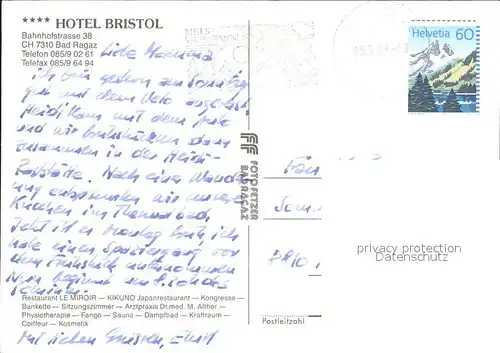 **** HOTEL BRISTOL
Bahnhofstrasse 38
CH 7310 Bad Ragaz
Telefon 085/9 02 61
Telefax 085/9 64 94
Liebe Mamma
ich bin gestern am Sonntag
gut mit dem Velo angekommen.
Heidi kam mit dem Auto
und wir frühstückten dann
zusammen in der Heidi-
Raststätte. Nach einer Wande-
rung entspannten wir unsere
Knochen im Thermalbad.
Jetzt ist Montag früh, ich
habe einen Spaziergang vor
dem Frühstück unternommen
Nun beginnt
Restaurant LE MIROIR — KIKUNO Japanrestaurant — Kongresso —
Bankette — Sitzungszimmer — Arztpraxis Dr.med. M. Alther —
Physiotherapie — Fango — Sauna — Dampfbad — Kraftraum —
Coiffeur — Kosmetik
Mit lieben Grüssen,
FOTO FETZER
BAD RAGAZ
MELS
Helvetia 60
7310
Postleitzahl
privacy protection
Datenschutz